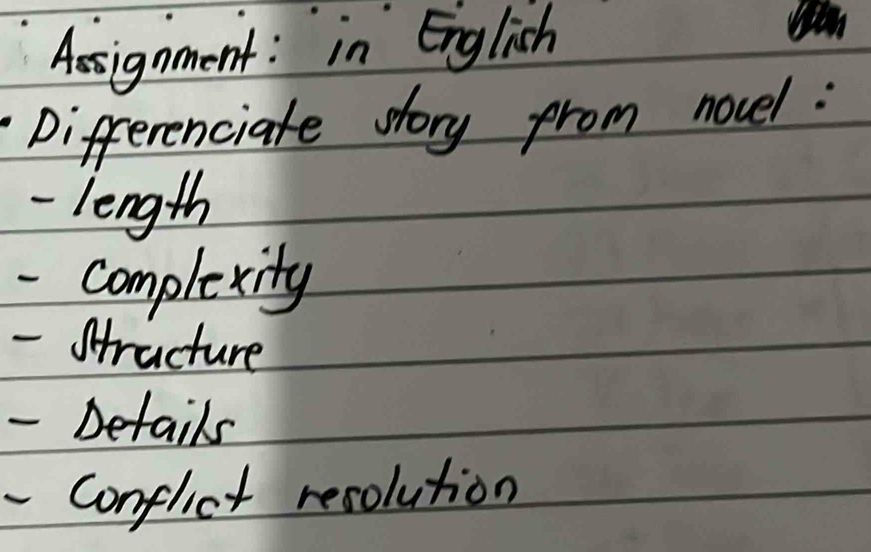 Assignment: in English
• Differenciate story from novel:
- length
- complexity
- Structure
- Details
- Conflict resolution